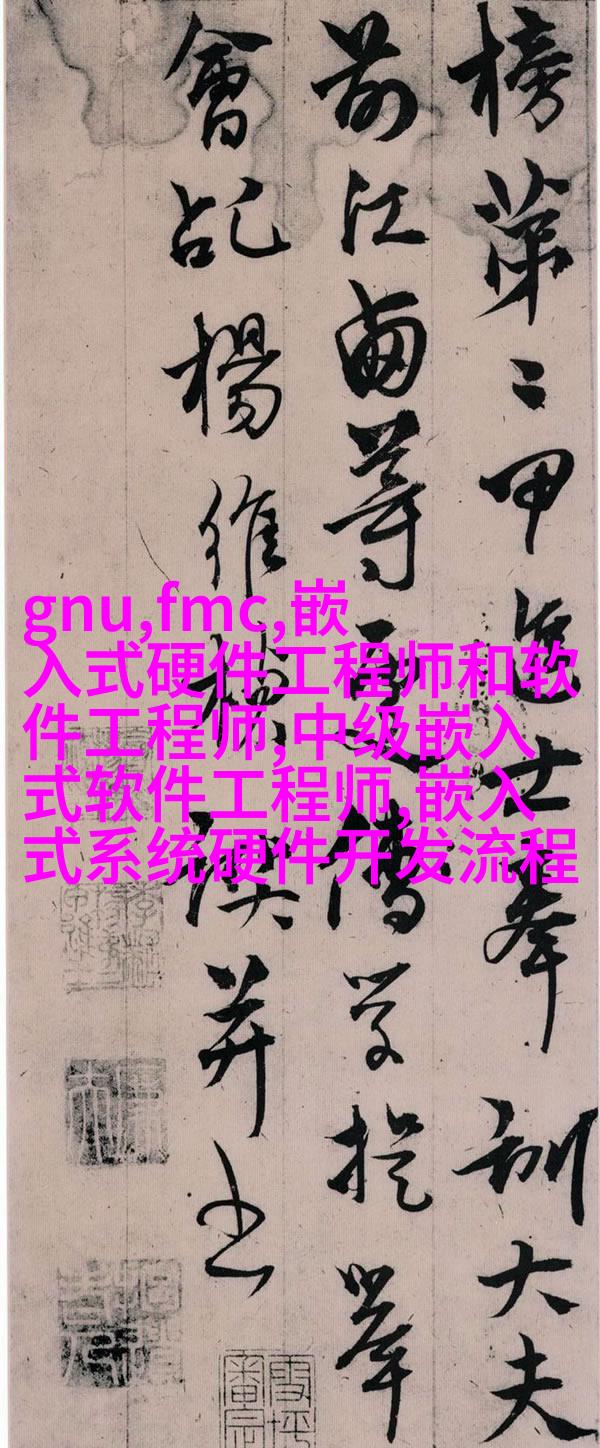 gnu,fmc,嵌
入式硬件工程师和软
件工程师,中级嵌入
式软件工程师,嵌入
式系统硬件开发流程
榜第二甲進士奉訓大夫
前江西等處儒學提舉
會稽楊維楨譔并書